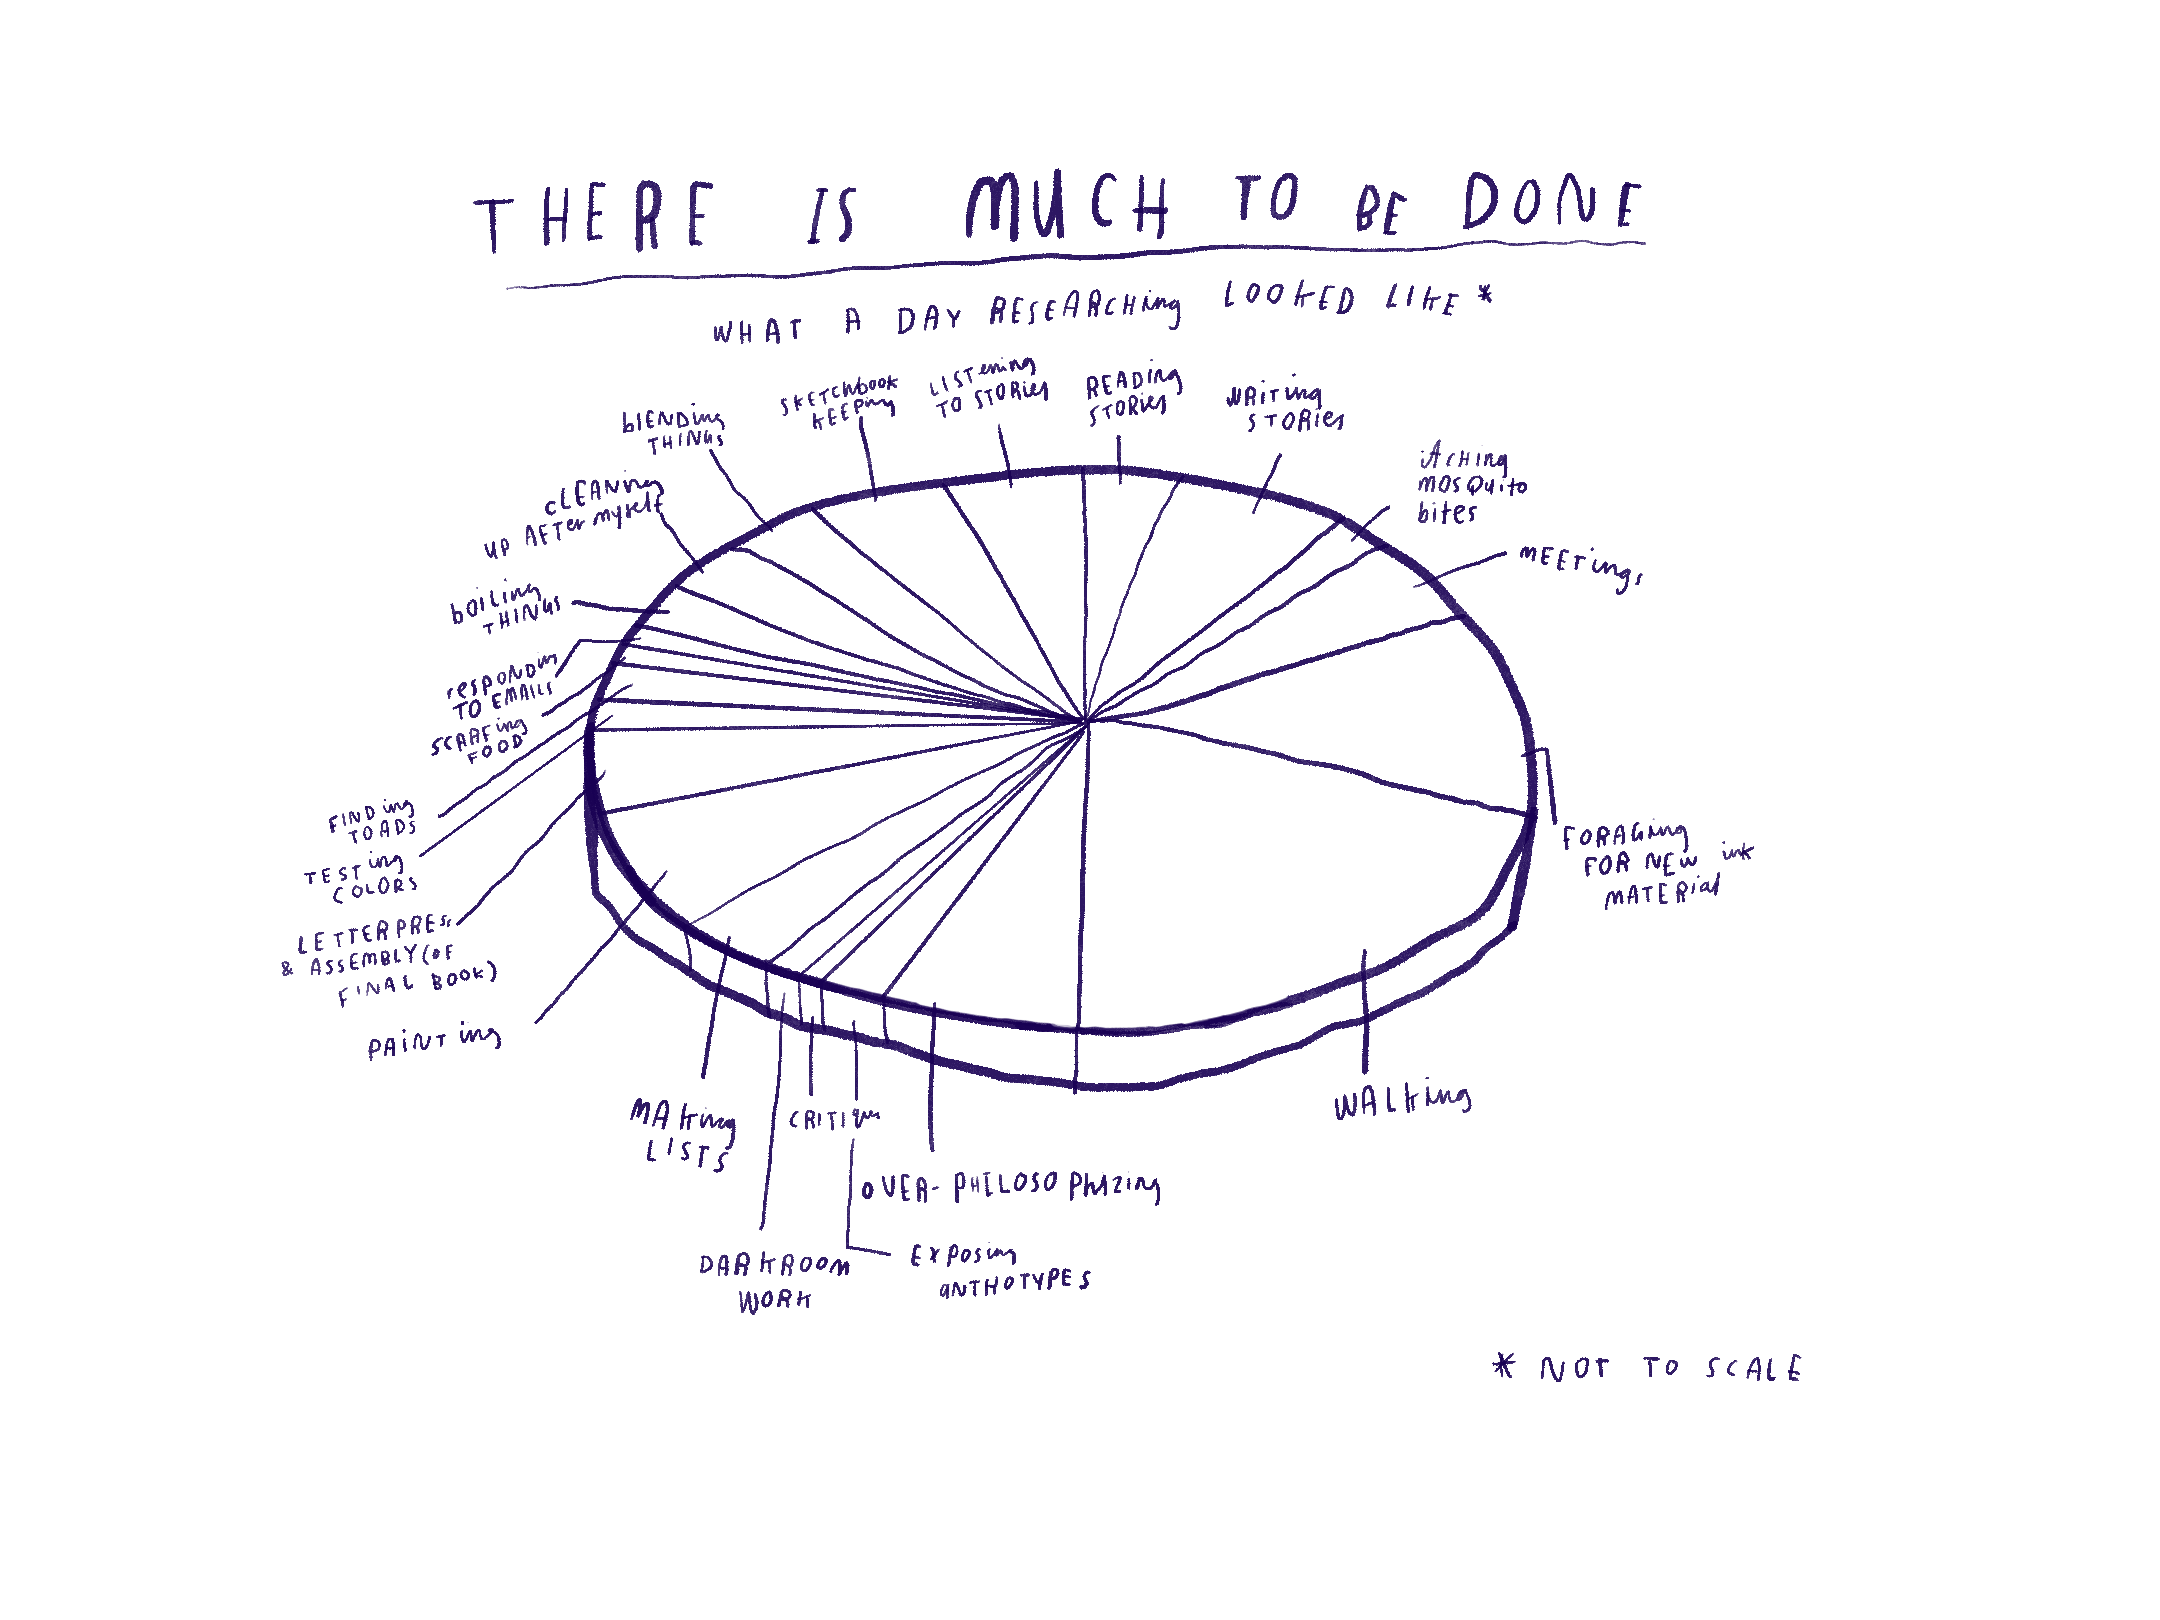 THERE IS MUCH TO BE DONE
WHAT A DAY RESEARCHing LOOKED LIKE *
SKETCHbook
KEEPing
LISTening
TO STORies
READing
STORies
WRITing
STORies
blENDing
THINGs
cLEANing
UP AFTer myself
boiLing
THINGs
resPONDing
TO EMAILs
SCARFing
FOOD
FINDing
TOADS
TESTing
COLORS
LETTERPREss
& ASSEMBLY (OF
FINAL BOOK)
PAiNTing
MAking
LISTS
DARKROOm
WORK
CRITIque
OVER-PHILOSOPhizing
Exposing
aNTHOTYPES
WALking
FORAGing
FOR NEW ink
MATERial
MEETings
itching
mosquito
bites
* NOT TO SCALE